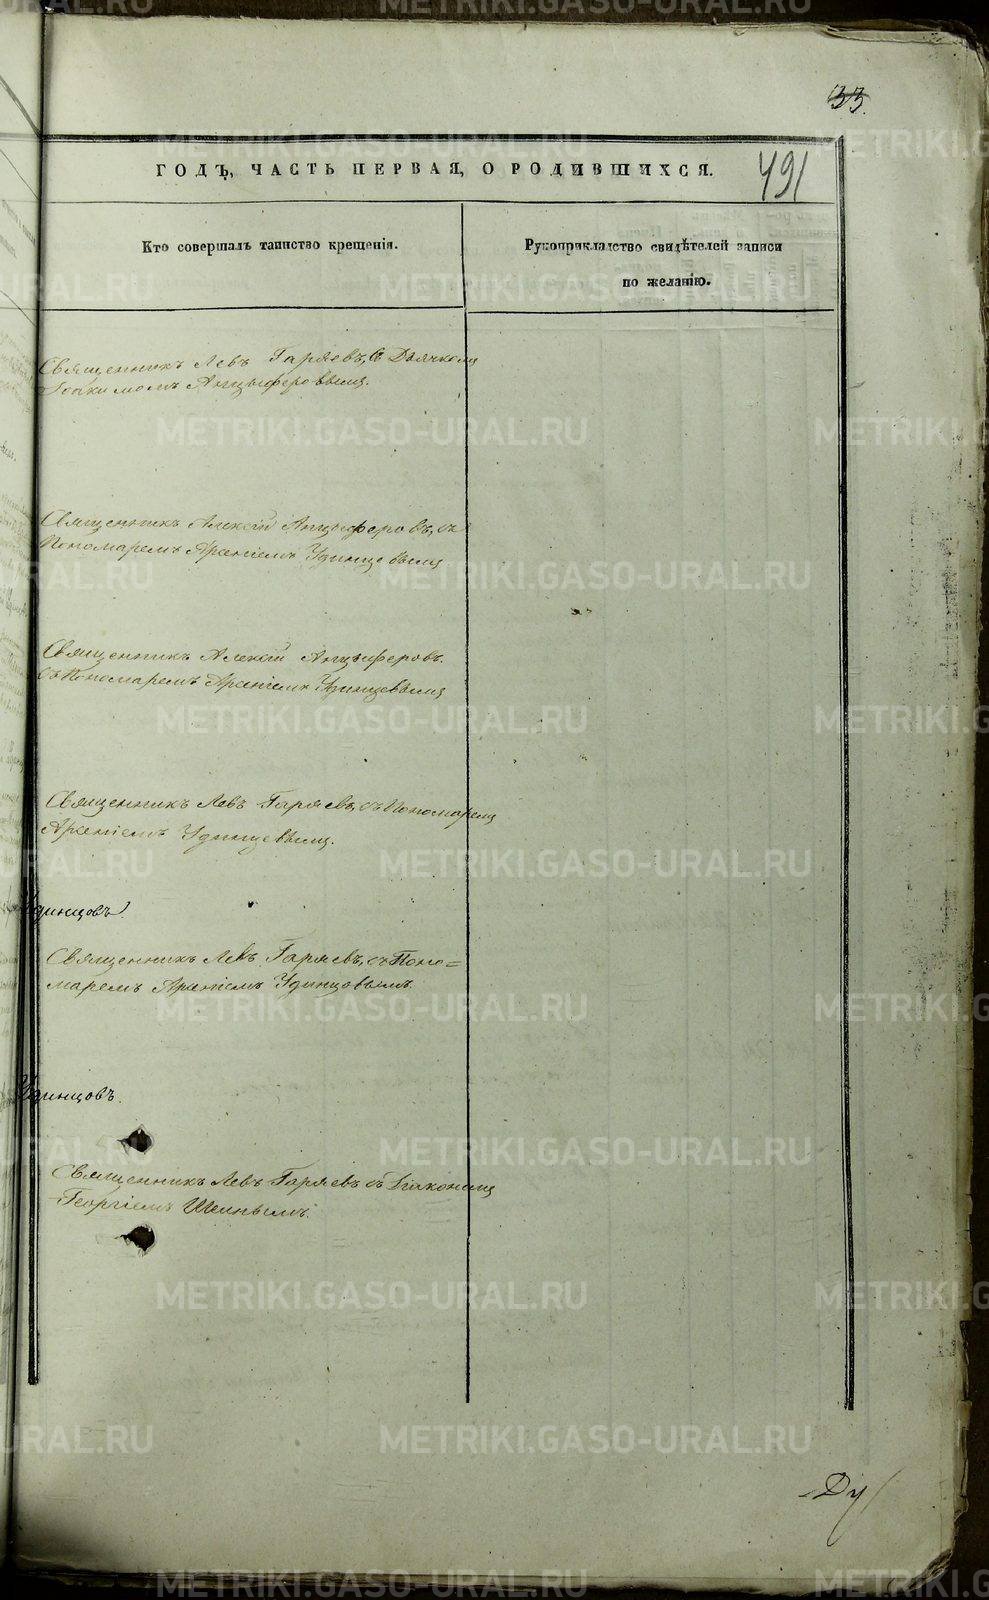 33.
ГОДЪ, ЧАСТЬ ПЕРВАЯ, О РОДИВШИХСЯ.
491
Кто совершалъ таинство крещенія.
Рукоприкладство свидѣтелей записи
по желанію.
Священникъ Левъ Гаряевъ, съ Дьячкомъ
Іоакимомъ Анцыферовымъ.
Священникъ Алексѣй Анцыферовъ, съ
Пономаремъ Арсеніемъ Удинцевымъ
Священникъ Алексѣй Анцыферовъ.
съ Пономаремъ Арсеніемъ Удинцевымъ
Священникъ Левъ Гаряевъ, съ Пономаремъ
Арсеніемъ Удинцевымъ.
Удинцовъ.
Священникъ Левъ Гаряевъ, съ Поно=
маремъ Арсеніемъ Удинцовымъ.
Удинцовъ.
Священникъ Левъ Гаряевъ съ Діакономъ
Георгіемъ
METRIKI.GASO-URAL.RU